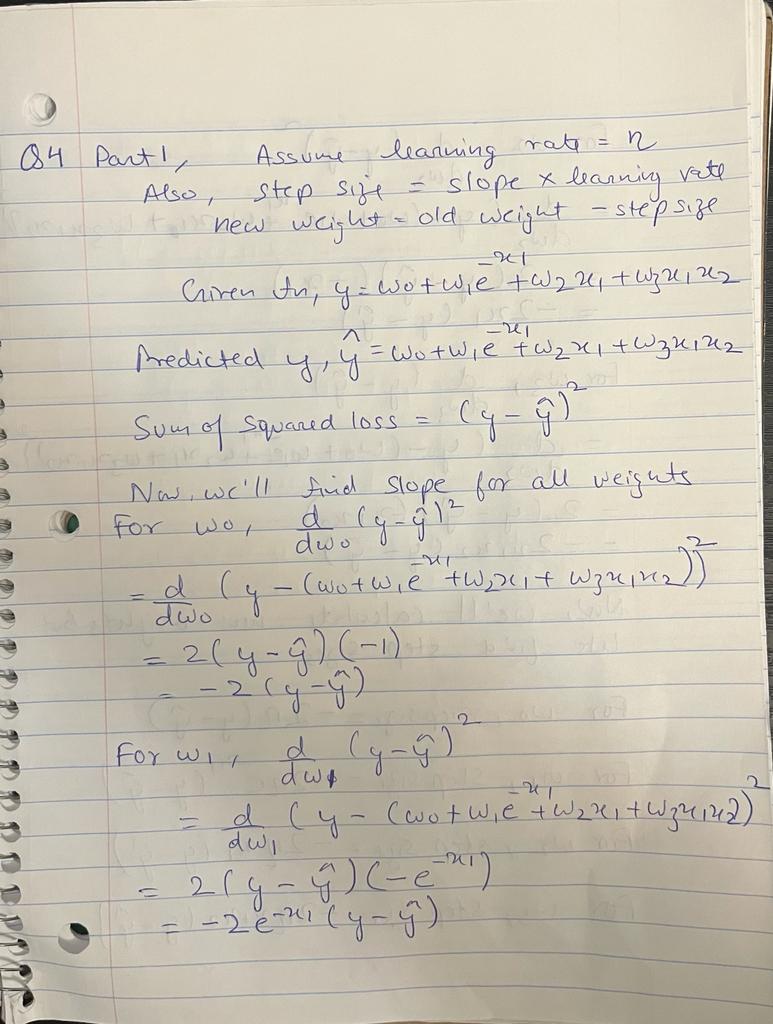 Q4 Part 1, Assume learning rate = n
Also, step size = slope x learning rate
new weight = old weight - step size
Given fn, y = w0 + w1e^-x1 + w2x1 + w3x1x2
Predicted y, ŷ = w0 + w1e^-x1 + w2x1 + w3x1x2
Sum of squared loss = (y - ŷ)^2
Now, we'll find slope for all weights
For w0, d/dw0 (y-ŷ)^2
= d/dw0 (y - (w0 + w1e^-x1 + w2x1 + w3x1x2))^2
= 2(y-ŷ)(-1)
= -2(y-ŷ)
For w1, d/dw1 (y-ŷ)^2
= d/dw1 (y - (w0 + w1e^-x1 + w2x1 + w3x1x2)^2
= 2(y-ŷ)(-e^-x1)
= -2e^-x1 (y-ŷ)